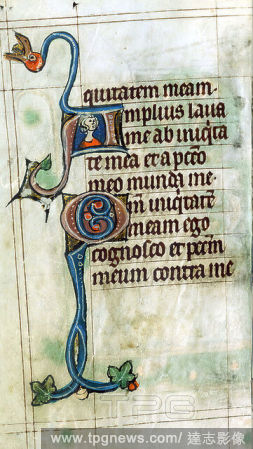 quitatem meam.
Amplius laua
me ab iniqita
te mea et a pcco
meo munda me.
Qm iniquitate
meam ego
cognosco et pccm
meum contra me
TPG
www.tpgnews.com/ 達志影像